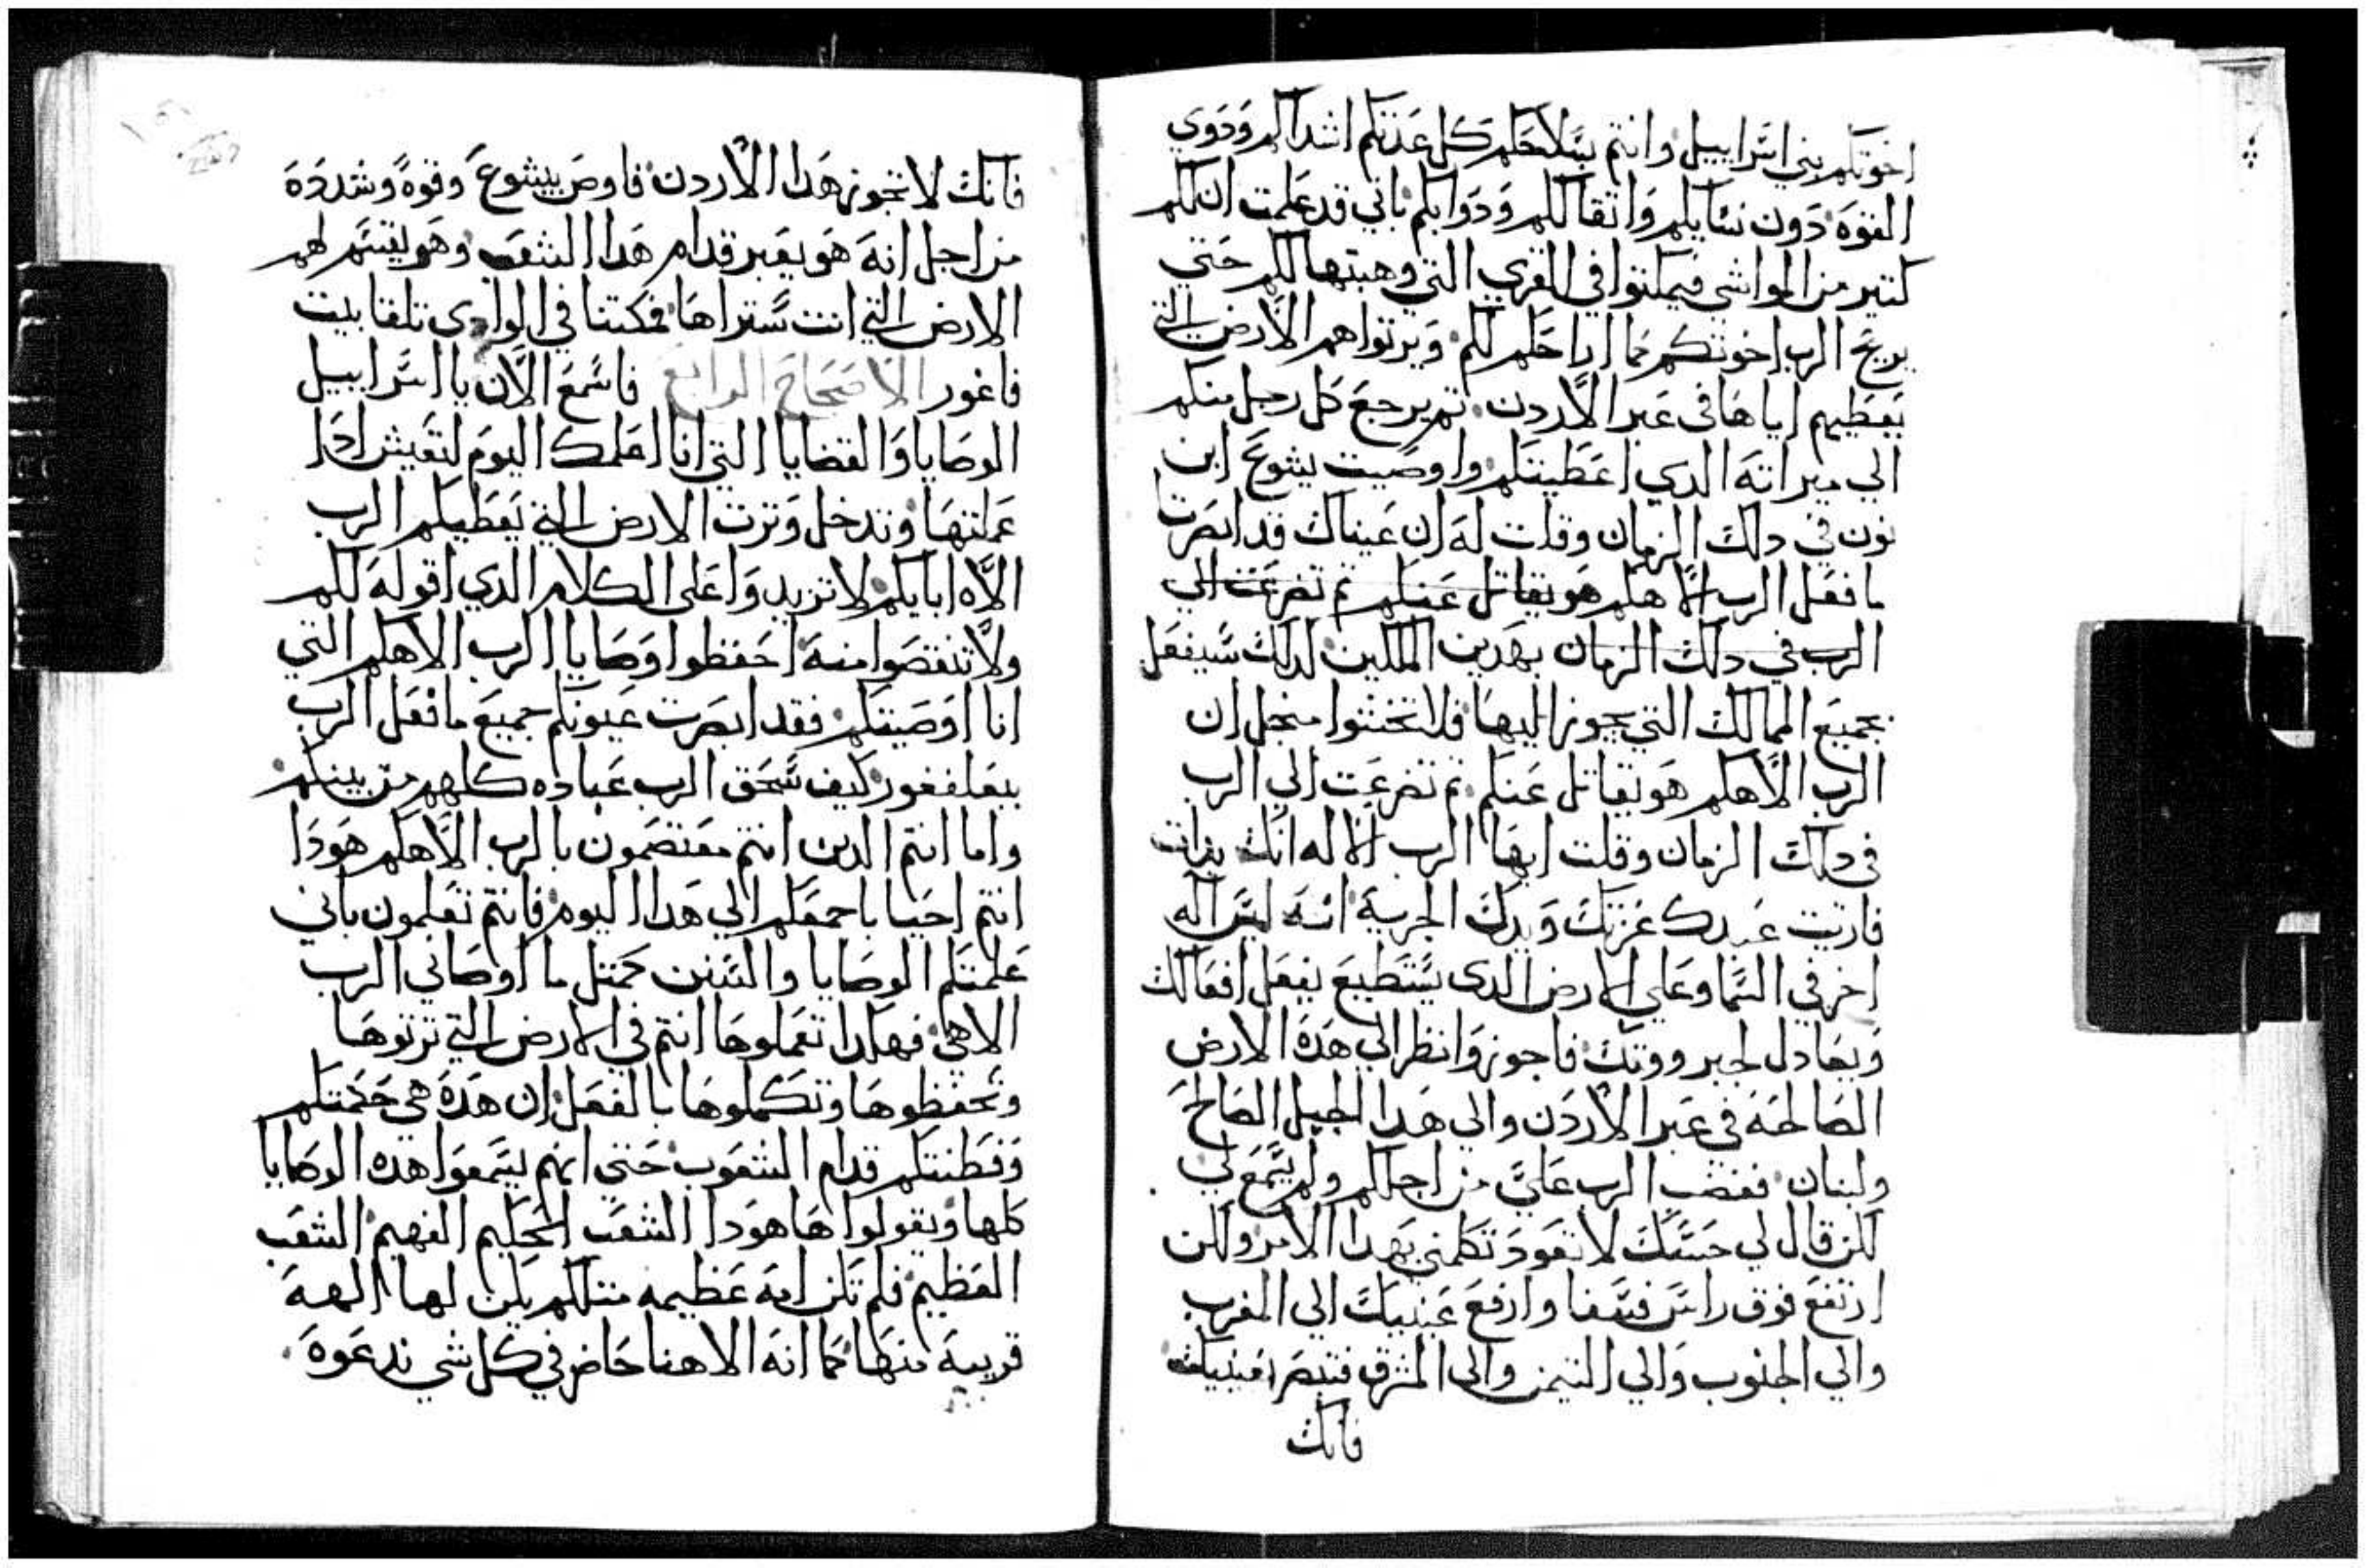 اخوتكم بني اسراييل وانتم بسلاحكم كل عدتكم اشداكم ودوي
القوه دون نسايكم واتقالكم ودوابكم باني قد علمت ان لكم
كتير من المواشي فيمكتوا في القري التي وهبتها لكم حتي
يريح الرب اخوتكم كما اراحكم لكم ويرتوا هم الارض التي
يعطيهم اياها في عبر الاردن تم يرجع كل رجل منكم
الي ميراته الدي اعطيتكم واوصيت يشوع ابن
نون في دلك الزمان وقلت له ان عيناك قد ابصرت
ما فعل الرب الاهكم هو يقاتل عنكم تم تضرعت الي
الرب في دلك الزمان بهدين الملكين لدلك سيفعل
بجميع الممالك التي يجوز اليها فلا تخشوا منجل ان
الرب الاهكم هو يقاتل عنكم تم تضرعت الي الرب
في دلك الزمان وقلت ايها الرب الاله انك بدات
فاريت عبدك عزتك ويدك الجرية انه ليس اله
اخر في السما وعلي الارض الدى يستطيع يفعل افعالك
ويعادل لجبر ووتك فاجوز وانظر الي هده الارض
الصالحه في عبر الاردن والي هدا الجبل الصالح
ولبنان فغضب الرب علي من اجلكم ولم يسمع لي
لكن قال لي حسبك لا تعود تكلمني بهدا الامر ولكن
ارتفع فوق راس فسغا وارفع عينيك الي المغرب
والي الجنوب والي التيمن والي المشرق فتبصر بعينيك
فانك
فانك لا تجوز هدا الاردن فاوص بيشوع وقوة وشددة
من اجل انه هو يعبر قدام هدا الشعب وهو يقسم لهم
الارض التي انت ستراها فمكتنا في الوادي تلقا بيت
فاغور الاصحاح الرابع فاسمع الان يا اسراييل
الوصايا والقضايا التي انا اعلمك اليوم لتعيش ادا
عملتها وتدخل وترت الارض التي يعطيكم الرب
الاه ابايكم لا تزيدوا على الكلام الدي اقوله لكم
ولا تنقصوا منه احفظوا وصايا الرب الاهكم التي
انا اوصيتكم فقد ابصرت عيونكم جميع ما فعل الرب
ببعلفغور كيف سحق الرب عباده كلهم من بينكم
واما انتم الدين انتم معتصمون بالرب الاهكم هودا
انتم احيا باجمعكم الي هدا اليوم فانتم تعلمون باني
علمتكم الوصايا والسنن كمتل ما اوصاني الرب
الاهي فهكدا تعملوها انتم في الارض التي ترتوها
وتحفظوها وتكملوها بالفعل ان هده هي حكمتكم
وفطنتكم قدام الشعوب حتي انهم يسمعوا هده الوصايا
كلها ويقولوا ها هودا الشعب الحكيم الفهيم الشعب
العظيم فلم تكن امه عظيمه متلكم يكن لها الهة
قريبه منها كما انه الاهنا حاضر في كل شي ندعوه